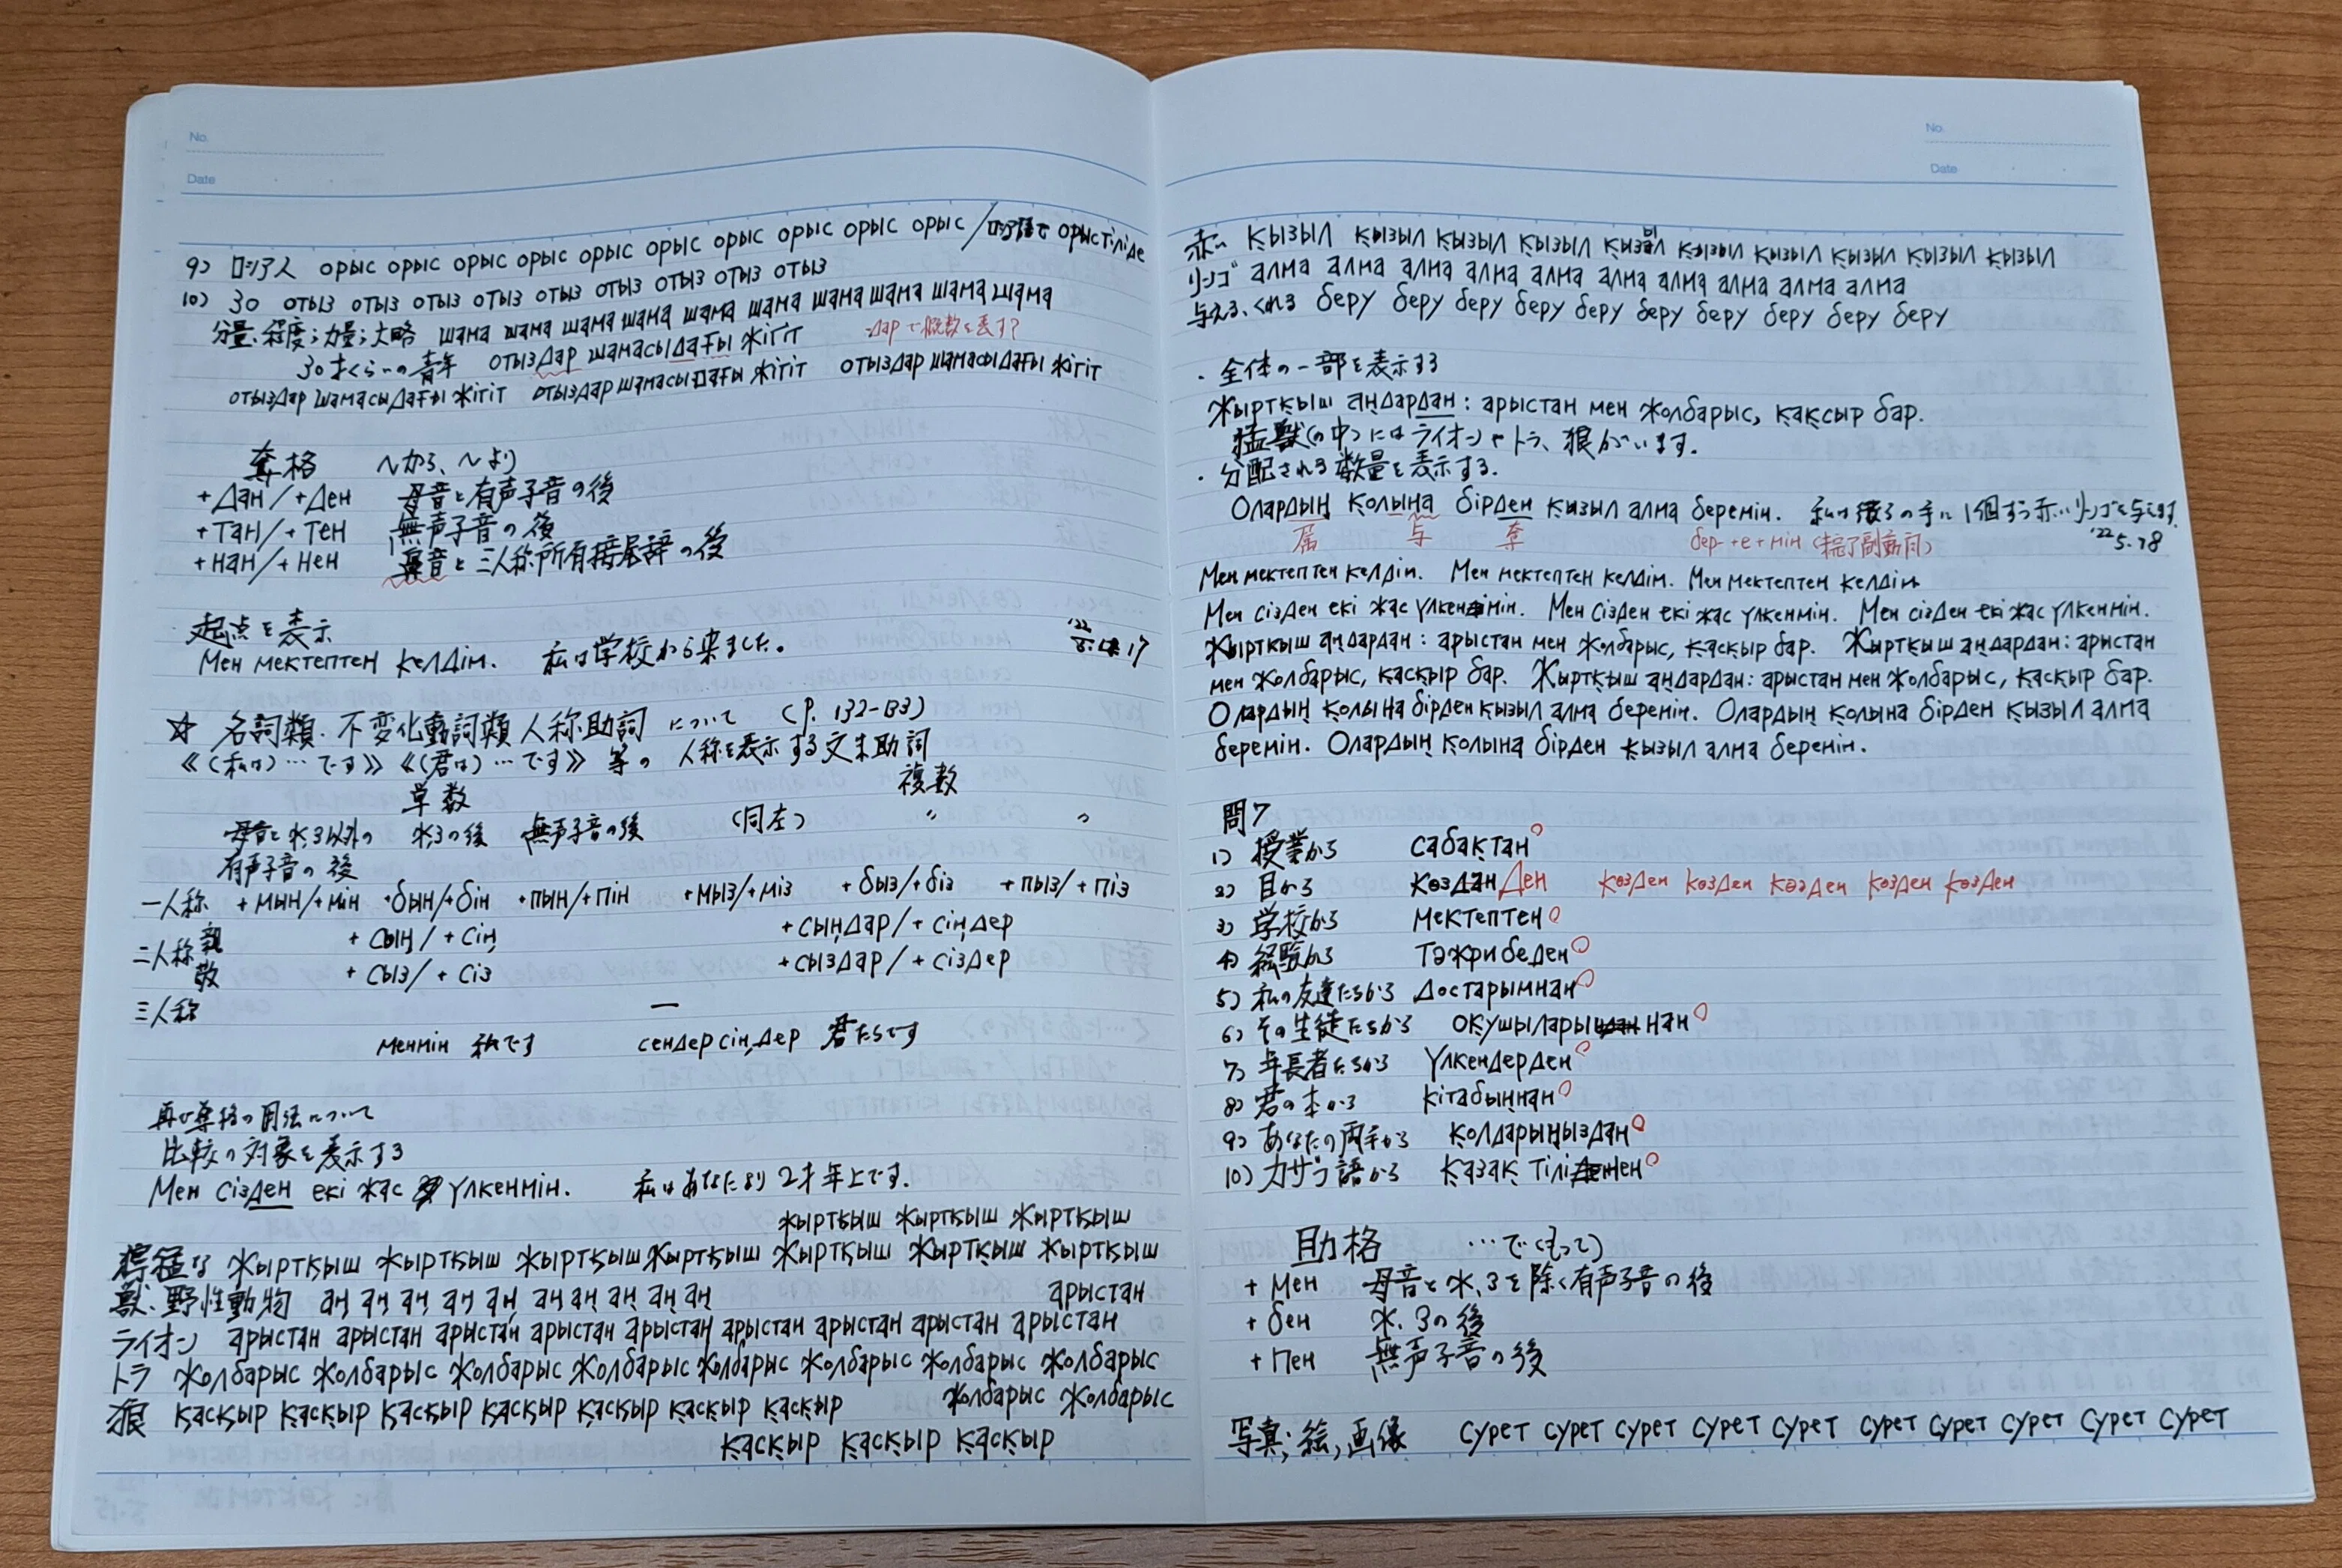 No.
Date
9) ロシア人 орыс орыс орыс орыс орыс орыс орыс орыс орыс орыс / ロシア語で орыстіліде
10) 30 отыз отыз отыз отыз отыз отыз отыз отыз
分量;程度;力量;大略 шама шама шама шама шама шама шама шама шама шама
30才くらいの青年 отыздар шамасыдағы жігіт -дарで概数を表す?
отыздар шамасыдағы жігіт отыздар шамасыдағы жігіт отыздар шамасыдағы жігіт
奪格 ~から、~より
+дан/+ден 母音と有声子音の後
+тан/+тен 無声子音の後
+нан/+нен 鼻音と三人称所有接尾辞の後
起点を表示
Мен мектептен келдім. 私は学校から来ました。 '22 5.17
☆ 名詞類・不変化動詞類人称助詞 について (P. 132-133)
《(私は)…です》《(君は)…です》等の 人称を表示する文末助詞
単数 複数
母音と ж,з以外の ж,зの後 無声子音の後 (同左) 〃 〃
有声子音の後
一人称 +мын/+мін +бын/+бін +пын/+пін +мыз/+міз +быз/+біз +пыз/+піз
二人称 親 +сың/+сің +сыңдар/+сіңдер
敬 +сыз/+сіз +сыздар/+сіздер
三人称 —
менмін 私です сендерсіңдер 君たちです
再び奪格の用法について
比較の対象を表示する
Мен сізден екі жас үлкенмін. 私はあなたより2才年上です。
жыртқыш жыртқыш жыртқыш
獰猛な жыртқыш жыртқыш жыртқыш жыртқыш жыртқыш жыртқыш жыртқыш
獣・野性動物 аң аң аң аң аң аң аң аң аң аң арыстан
ライオン арыстан арыстан арыстан арыстан арыстан арыстан арыстан арыстан арыстан
トラ жолбарыс жолбарыс жолбарыс жолбарыс жолбарыс жолбарыс жолбарыс жолбарыс
狼 қасқыр қасқыр қасқыр қасқыр қасқыр қасқыр қасқыр жолбарыс жолбарыс
қасқыр қасқыр қасқыр
No.
Date
赤い қызыл қызыл қызыл қызыл қызыл қызыл қызыл қызыл қызыл қызыл
リンゴ алма алма алма алма алма алма алма алма алма алма
与える、くれる беру беру беру беру беру беру беру беру беру беру
・全体の一部を表示する
Жыртқыш аңдардан: арыстан мен жолбарыс, қақсыр бар.
猛獣(の中)にはライオンやトラ、狼がいます。
・分配される数量を表示する.
Олардың қолына бірден қызыл алма беремін. 私は彼らの手に1個ずつ赤いリンゴを与えます.
属 与 奪 бер-+е+мін (未完了副動詞) '22 5.18
Мен мектептен келдім. Мен мектептен келдім. Мен мектептен келдім
Мен сізден екі жас үлкенмін. Мен сізден екі жас үлкенмін. Мен сізден екі жас үлкенмін.
Жыртқыш аңдардан: арыстан мен жолбарыс, қасқыр бар. Жыртқыш аңдардан: арыстан
мен жолбарыс, қасқыр бар. Жыртқыш аңдардан: арыстан мен жолбарыс, қасқыр бар.
Олардың қолына бірден қызыл алма беремін. Олардың қолына бірден қызыл алма
беремін. Олардың қолына бірден қызыл алма беремін.
問7
1) 授業から сабақтан
2) 目から көздан ден көзден көзден көзден көзден көзден
3) 学校から мектептен
4) 経験から тәжрибеден
5) 私の友達たちから достарымнан
6) その生徒たちから оқушыларынан
7) 年長者たちから үлкендерден
8) 君の本から кітабыңнан
9) あなたの両手から қолдарыңыздан
10) カザフ語から қазақ тілінен
助格 …で(もって)
+мен 母音とж,зを除く有声子音の後
+бен ж,зの後
+пен 無声子音の後
写真;絵,画像 сурет сурет сурет сурет сурет сурет сурет сурет сурет сурет